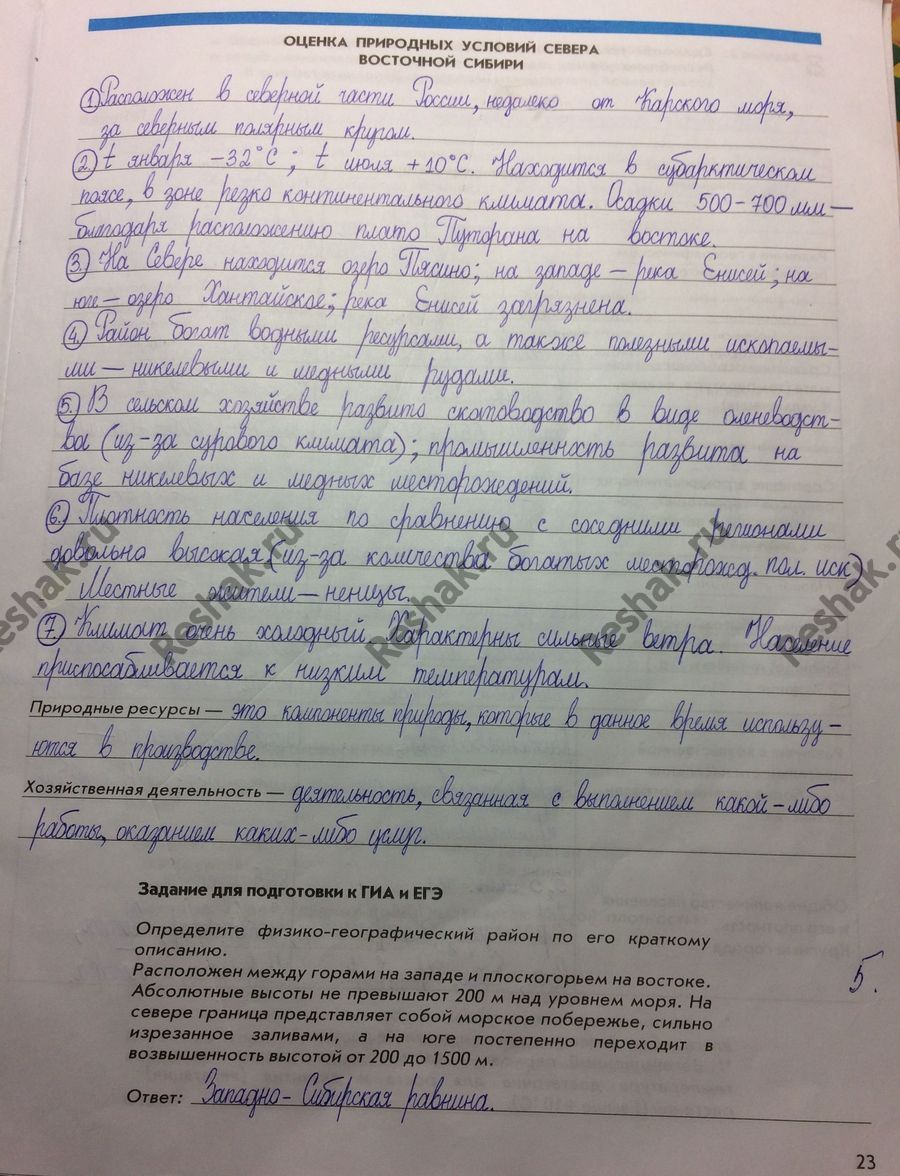 ОЦЕНКА ПРИРОДНЫХ УСЛОВИЙ СЕВЕРА
ВОСТОЧНОЙ СИБИРИ
1 Расположен в северной части России, недалеко от Карского моря,
за северным полярным кругом.
2 t января -32°C; t июля +10°C. Находится в субарктическом
поясе, в зоне резко континентального климата. Осадки 500-700 мм —
благодаря расположению плато Путорана на востоке.
3. На Севере находится озеро Пясино; на западе — река Енисей; на
юге — озеро Хантайское; река Енисей загрязнена.
4. Район богат водными ресурсами, а также полезными ископаемы-
ми — никелевыми и медными рудами.
5. В сельском хозяйстве развито скотоводство в виде оленеводст-
ва (из-за сурового климата); промышленность развита на
базе никелевых и медных месторождений.
6. Плотность населения по сравнению с соседними регионами
довольно высокая (из-за количества богатых месторожд. пол. иск)
Местные жители — неницы.
7 Климат очень холодный. Характерны сильные ветра. Население
приспосабливается к низким температурам.
Природные ресурсы — это компоненты природы, которые в данное время использу-
ются в производстве.
Хозяйственная деятельность — деятельность, связанная с выполнением какой-либо
работы, оказанием каких-либо услуг.
Reshak.ru
Reshak.ru
Reshak.ru
Reshak.ru
Задание для подготовки к ГИА и ЕГЭ
Определите физико-географический район по его краткому
описанию.
Расположен между горами на западе и плоскогорьем на востоке.
Абсолютные высоты не превышают 200 м над уровнем моря. На
севере граница представляет собой морское побережье, сильно
изрезанное заливами, а на юге постепенно переходит в
возвышенность высотой от 200 до 1500 м.
5.
Ответ: Западно-Сибирская равнина.
23